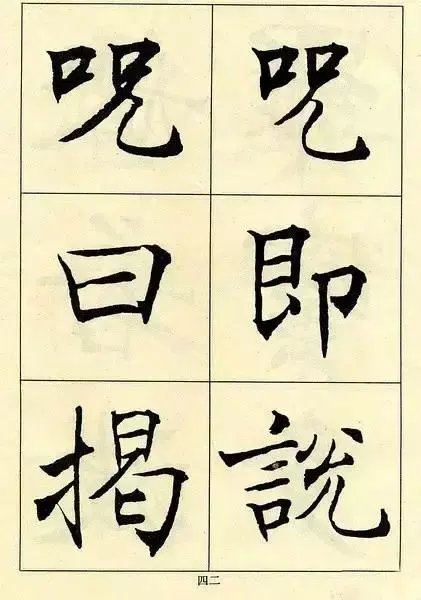 咒即說
呪曰揭
四二